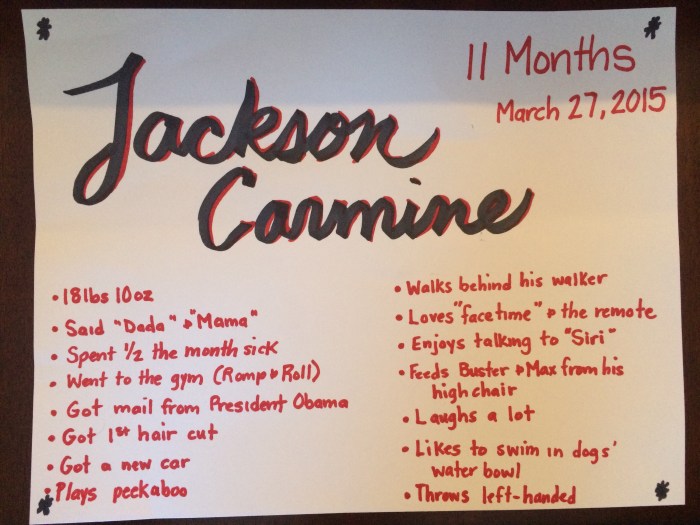 11 Months
March 27, 2015
Jackson
Carmine
• 18lbs 10oz
• Said "Dada" & "Mama"
• Spent 1/2 the month sick
• Went to the gym (Romp & Roll)
• Got mail from President Obama
• Got 1st hair cut
• Got a new car
• Plays peekaboo
• Walks behind his walker
• Loves "facetime" & the remote
• Enjoys talking to "Siri"
• Feeds Buster & Max from his
high chair
• Laughs a lot
• Likes to swim in dogs'
water bowl
• Throws left-handed